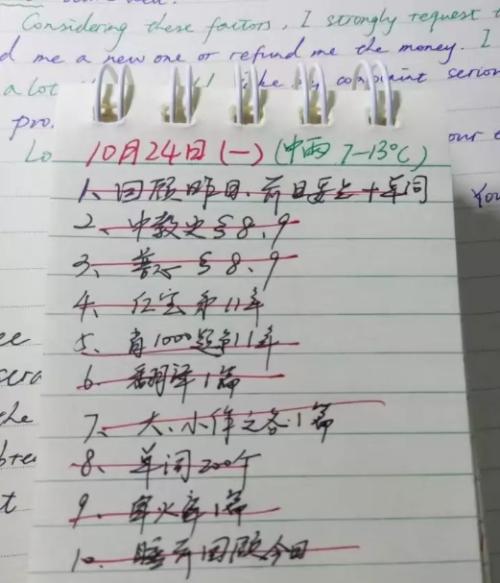 Considering these factors, I strongly request t
d me a new one or refund me the money. I
a lot
complaint serious
pro.
our
Lo
You
10月24日(一)(中雨 7-13℃)
1、回顾昨日、前日要点+单词
2、中教史§8、9
3、普心§8、9
4、仁宝第11章
5、肖1000题第11章
6、翻译1篇
7、大、小作文各1篇
8、单词200个
9、1篇
10、睡前回顾今日
ee
the
t